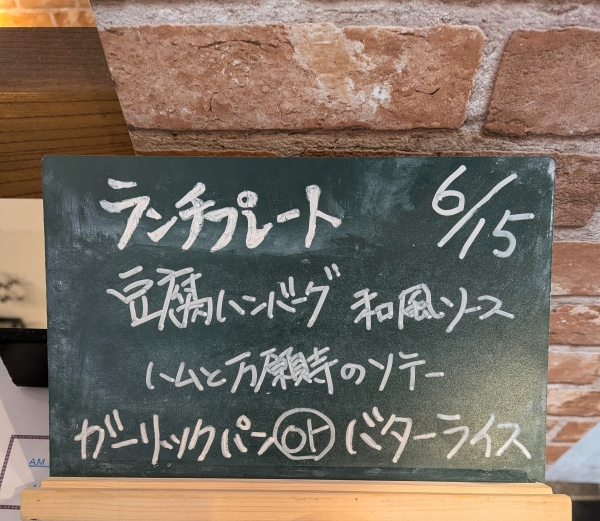 ランチプレート 6/15
豆腐ハンバーグ 和風ソース
ハムと万願寺のソテー
ガーリックパン or バターライス
AM